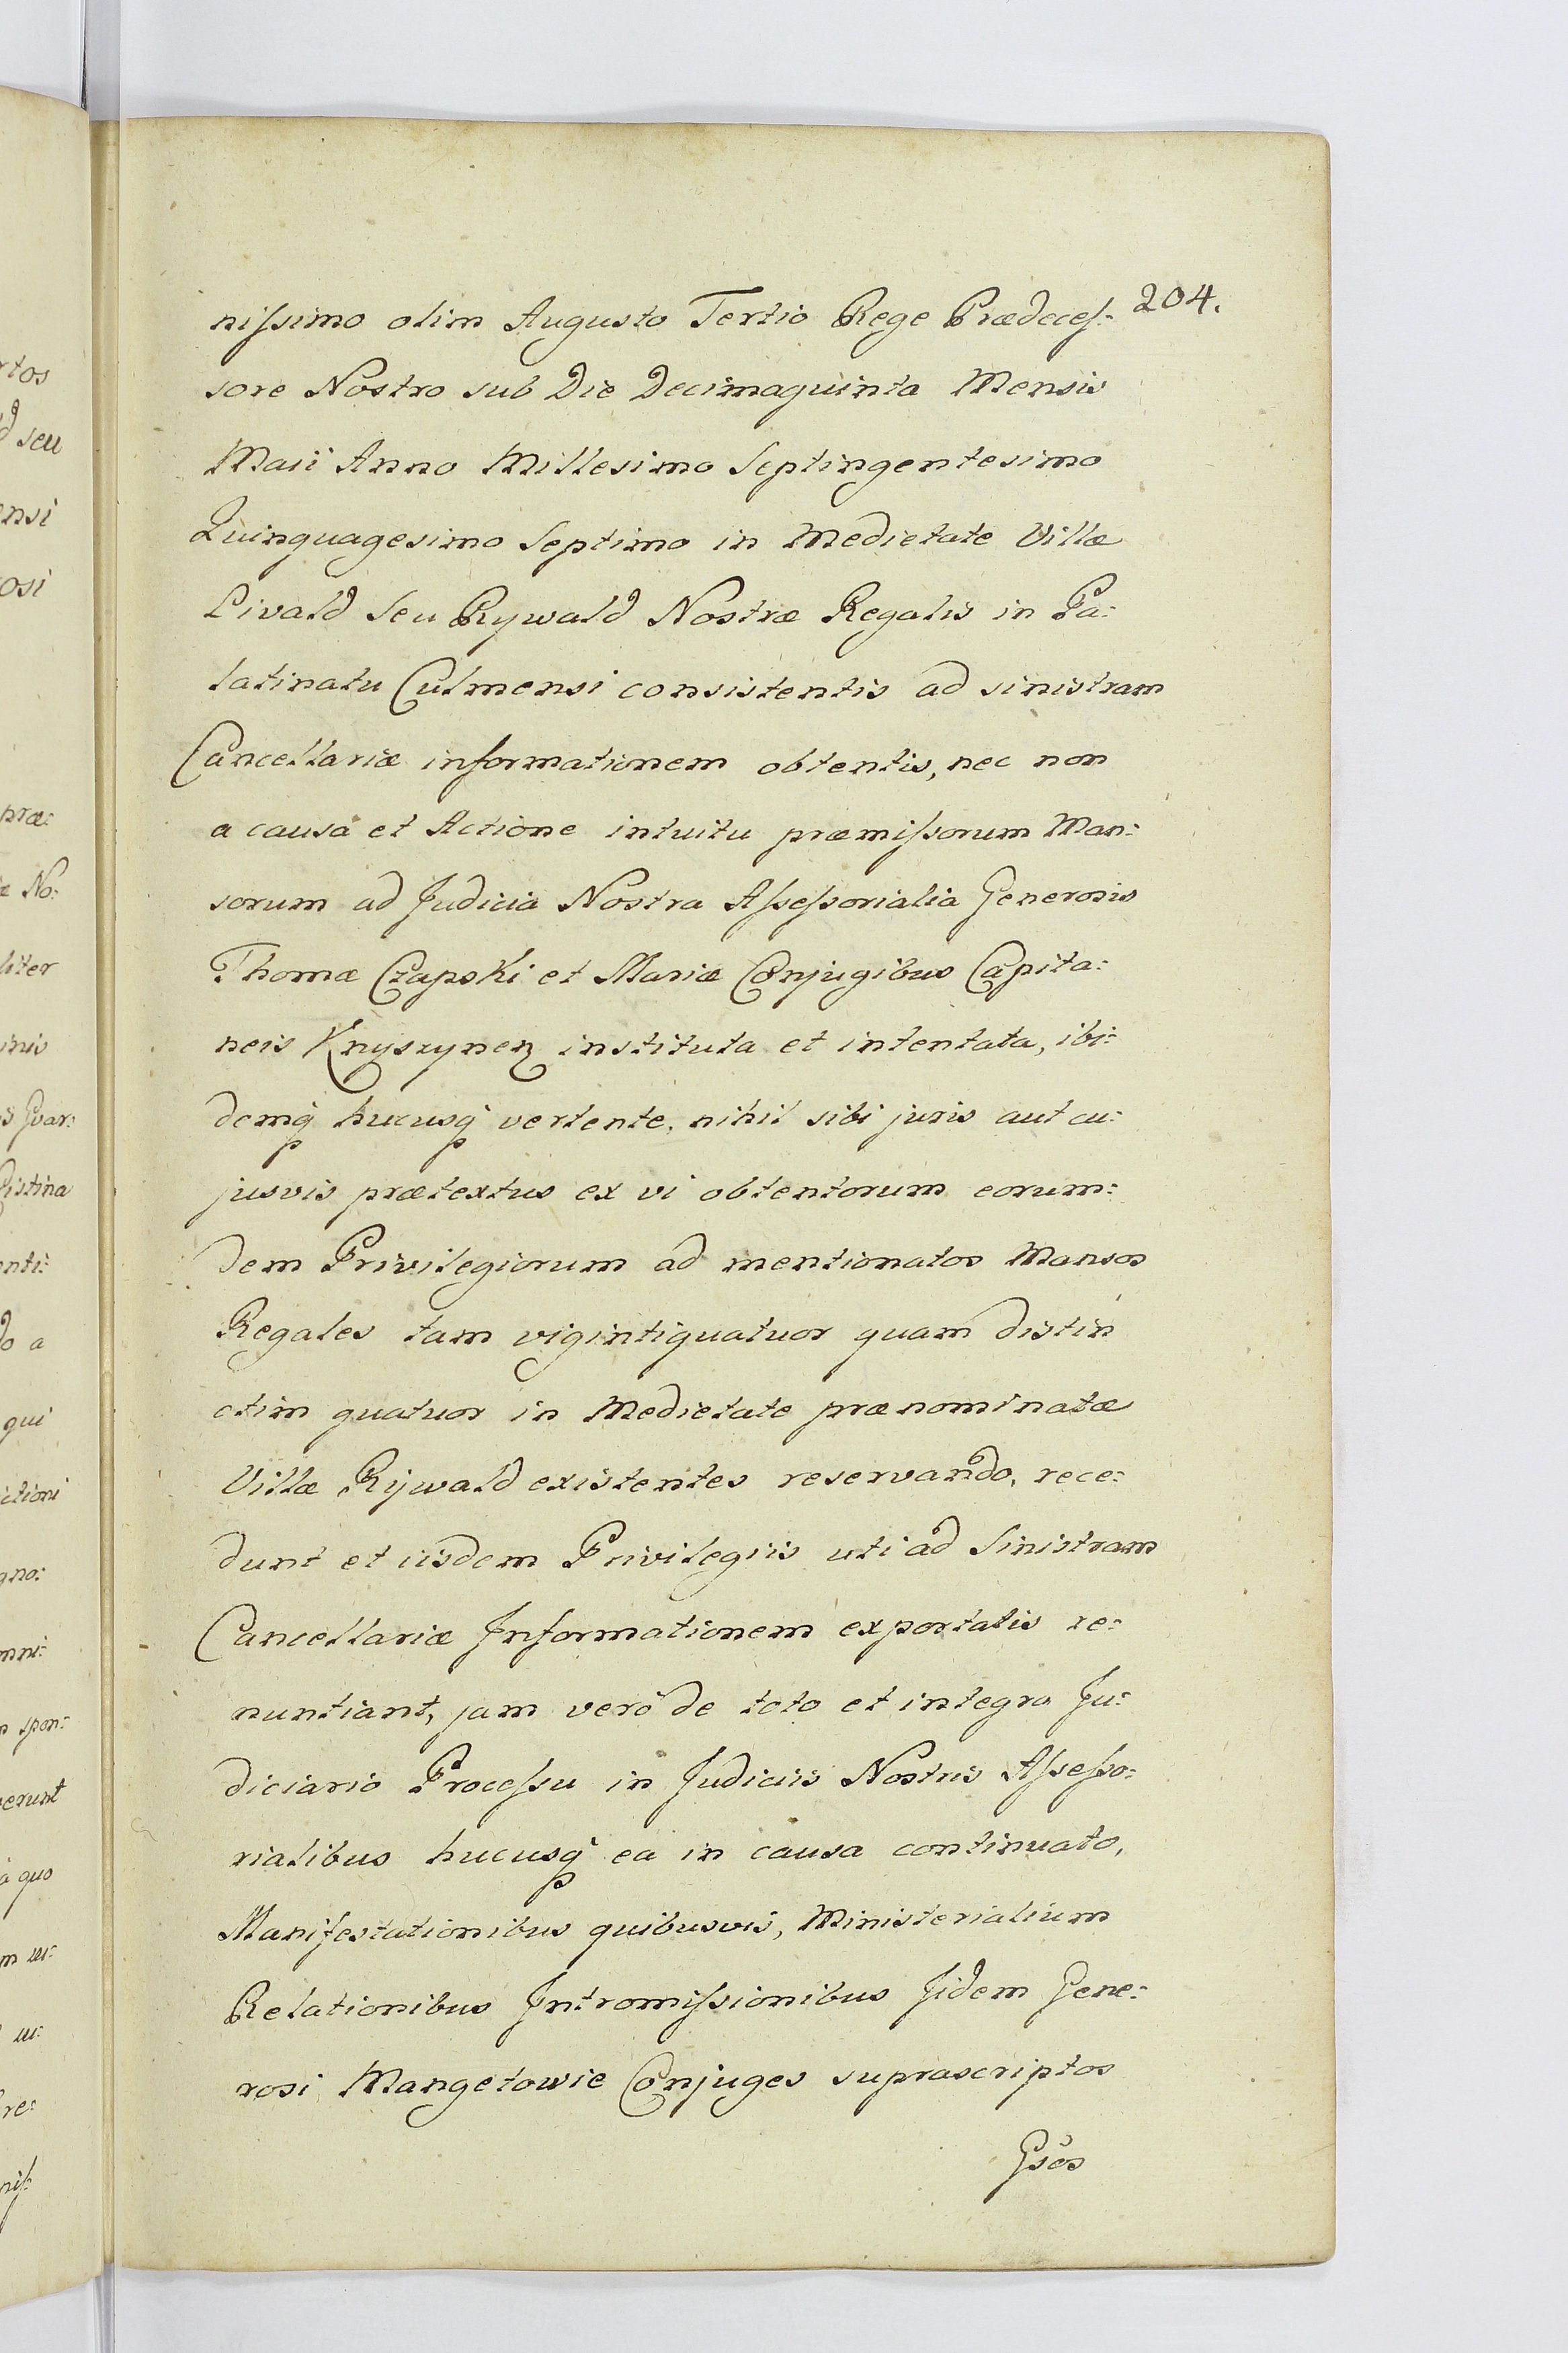 204.
nissimo olim Augusto Tertio Rege Prædeces:
sore Nostro sub Die Decimaquinta Mensis
Maii Anno Millesimo Septingentesimo
Quinquagesimo Septimo in Medietate Villæ
Livald seu Rywald Nostræ Regalis in Pa:
latinatu Culmensi consistentis ad sinistram
Cancellariæ informationem obtentis, nec non
a causa et Actione intuitu præmissorum Man:
sorum ad Judicia Nostra Assessorialia Generosis
Thomæ Czapski et Mariæ Conjugibus Capita:
neis Knyszynen instituta et intentata, ibi:
demq hucusq vertente, nihil sibi juris aut cu:
jusvis prætextus ex vi obtentorum eorum:
dem Privilegiorum ad mentionatos Mansos
Regales tam vigintiquatuor quam distin
ctim quatuor in Medietate prænominatæ
Villæ Rywald existentes reservando, rece:
dunt et iisdem Privilegiis uti ad Sinistram
Cancellariæ Informationem exportatis re:
nuntiant, jam verò de toto et integro Ju:
diciario Processu in Judiciis Nostris Assesso:
rialibus hucusq ea in causa continuato,
Manifestationibus quibusvis, Ministerialium
Relationibus Intromissionibus Iidem Gene:
rosi Mangetowie Conjuges suprascriptos
Gsos
rtos
d seu
ensi
osi
præ:
æ No:
liter
inis
s Guar:
Pistina
enti:
do a
qui
ictioni
gno:
mni:
n spon:
verunt
à quo
m ur:
ur:
re:
nis: